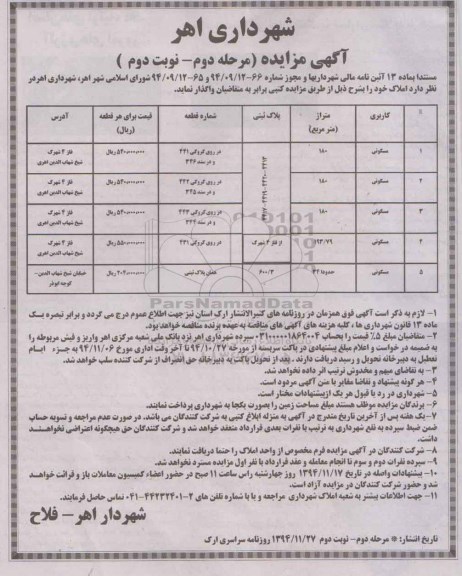 شهرداری اهر
آگهی مزایده (مرحله دوم- نوبت دوم )
مستندا بماده ۱۳ آئین نامه مالی شهرداریها و مجوز شماره ۶۶-۹۴/۰۹/۱۲ و ۶۵-۹۴/۰۹/۱۲ شورای اسلامی شهر اهر، شهرداری اهر در
نظر دارد املاک خود را بشرح ذیل از طریق مزایده کتبی برابر به متقاضیان واگذار نماید.
کاربری متراژ (متر مربع) پلاک ثبتی شماره قطعه قیمت برای هر قطعه (ریال) آدرس
۱ مسکونی ۱۸۰ در روی کروکی ۳۴۱ و در سند ۳۴۶ ۵۴۰/۰۰۰/۰۰۰ ریال فاز ۴ شهرک شیخ شهاب الدین اهری
۲ مسکونی ۱۸۰ در روی کروکی ۳۴۲ و در سند ۳۴۵ ۵۴۰/۰۰۰/۰۰۰ ریال فاز ۴ شهرک شیخ شهاب الدین اهری
۳ مسکونی ۱۸۰ در روی کروکی ۳۴۳ و در سند ۳۴۴ ۵۴۰/۰۰۰/۰۰۰ ریال فاز ۴ شهرک شیخ شهاب الدین اهری
۴ مسکونی ۱۹۳/۷۹ از فاز ۴ شهرک در روی کروکی ۲۳۱ ۵۵۰/۰۰۰/۰۰۰ ریال فاز ۴ شهرک شیخ شهاب الدین اهری
۵ مسکونی حدودا ۳۴ ۶۰۰/۳ همان پلاک ثبتی ۲۰۴/۰۰۰/۰۰۰ ریال خیابان شیخ شهاب الدین- کوچه ابوذر
ParsNamadData
۱- لازم به ذکر است آگهی فوق همزمان در روزنامه های کثیرالانتشار ارک استان نیز جهت اطلاع عموم درج می گردد و برابر تبصره یک
ماده ۱۳ قانون شهرداری ها ، کلیه هزینه های آگهی های مناقصه به عهده برنده مناقصه خواهد بود.
۲- متقاضیان مبلغ ۵٪ قیمت را بحساب ۰۳۱۰۰۰۰۰۱۸۶۴۰۰۴ سپرده شهرداری اهر نزد بانک ملی شعبه مرکزی اهر واریز و فیش مربوطه را
به ضمیمه درخواست و اعلام مبلغ پیشنهادی در پاکت سربسته از مورخه ۹۴/۱۰/۲۷ تا آخر وقت اداری مورخ ۹۴/۱۱/۰۶ به جزء ایام
تعطیل به دبیرخانه تحویل و رسید دریافت دارند . بعد از تحویل پاکت به دبیرخانه حق انصراف از شرکت کننده سلب خواهد شد.
۳- به تقاضای مبهم و مخدوش ترتیب اثر داده نخواهد شد.
۴- هر گونه پیشنهاد و تقاضا مغایر با متن آگهی مردود است.
۵- شهرداری در رد یا قبول هر یک از پیشنهادات مختار است.
۶- برندگان مزایده موظف هستند مبلغ مساحت زمین را بصورت یکجا به شهرداری پرداخت نمایند.
۷- یک هفته پس از آخرین تاریخ مندرج در آگهی به منزله ابلاغ کتبی به شرکت کنندگان می باشد. در صورت عدم مراجعه و تسویه حساب
ضمن ضبط سپرده به نفع شهرداری به ترتیب با نفرات بعدی قرارداد منعقد خواهد شد و شرکت کنندگان حق هیچگونه اعتراضی نخواهند
داشت.
۸- شرکت کنندگان در آگهی مزایده فرم مخصوص از واحد املاک را حتما دریافت نمایند.
۹- سپرده نفرات دوم و سوم تا انجام معامله و عقد قرارداد با نفر اول مزایده مسترد نخواهد شد.
۱۰- پیشنهادات واصله در تاریخ ۱۳۹۴/۱۱/۱۷ روز چهارشنبه راس ساعت ۱۱ صبح در حضور اعضاء کمیسیون معاملات باز و قرائت خواهد
شد و حضور شرکت کنندگان در مزایده آزاد است.
۱۱- جهت اطلاعات بیشتر به شعبه املاک شهرداری مراجعه و یا با شماره تلفن های ۲-۰۴۱-۴۴۲۳۲۴۰۱ تماس حاصل فرمایند.
شهردار اهر- فلاح
تاریخ انتشار: * مرحله دوم- نوبت دوم ۱۳۹۴/۱۱/۲۷ روزنامه سراسری ارک